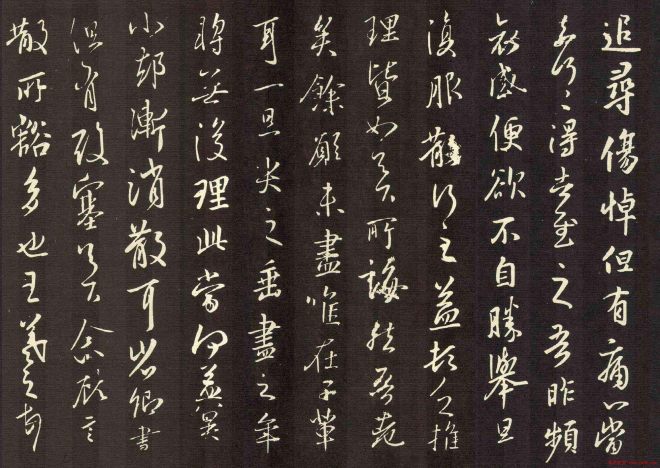 追尋傷悼但有痛心當
奈何〻得告慰之吾昨頻
哀感便欲不自勝舉旦
復服散行之益頓乏推
理皆如足下所誨然吾老
矣餘願未盡惟在子輩
耳一旦哭之垂盡之年
將無復理此當何益冀
小卻漸消散耳省卿書
但有酸塞足下念故言
散所豁多也王羲之頓首